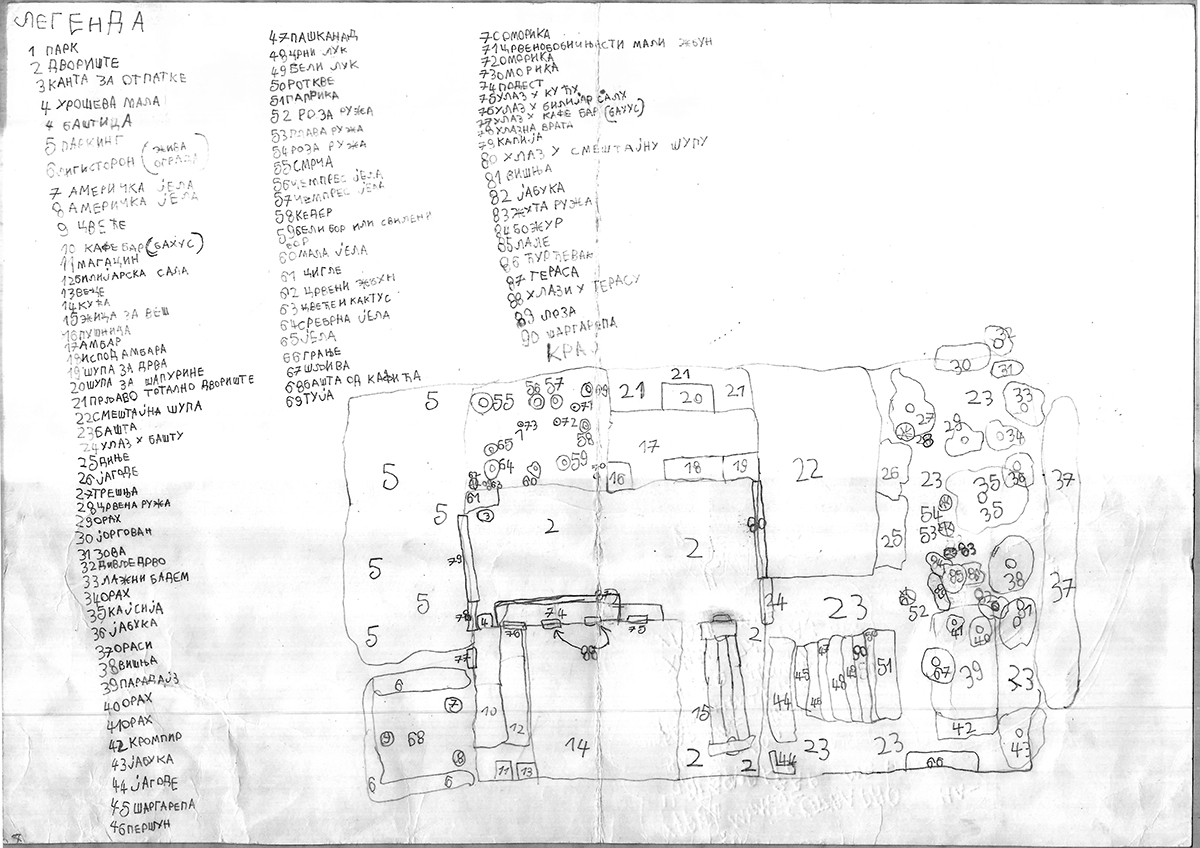 ЛЕГЕНДА
1 ПАРК
2 ДВОРИШТЕ
3 КАНТА ЗА ОТПАТКЕ
4 УРОШЕВА МАЛА
4 БАШТИЦА
5 ПАРКИНГ
6 ЛИГИСТОРОН (ЖИВА ОГРАДА)
7 АМЕРИЧКА ЈЕЛА
8 АМЕРИЧКА ЈЕЛА
9 ЦВЕЋЕ
10 КАФЕ БАР (БАХУС)
11 МАГАЦИН
12 БИЛИЈАРСКА САЛА
13 ВЕЦЕ
14 КУЋА
15 ЖИЦА ЗА ВЕШ
16 ПУШНИЦА
17 АМБАР
18 ИСПОД АМБАРА
19 ШУПА ЗА ДРВА
20 ШУПА ЗА ШАПУРИНЕ
21 ПРЉАВО ТОТАЛНО ДВОРИШТЕ
22 СМЕШТАЈНА ШУПА
23 БАШТА
24 УЛАЗ У БАШТУ
25 ДИЊЕ
26 ЈАГОДЕ
27 ТРЕШЊА
28 ЦРВЕНА РУЖА
29 ОРАХ
30 ЈОРГОВАН
31 ЗОВА
32 ДИВЉЕ ДРВО
33 ЛАЖНИ БАДЕМ
34 ОРАХ
35 КАЈСИЈА
36 ЈАБУКА
37 ОРАСИ
38 ВИШЊА
39 ПАРАДАЈЗ
40 ОРАХ
41 ОРАХ
42 КРОМПИР
43 ЈАБУКА
44 ЈАГОДЕ
45 ШАРГАРЕПА
46 ПЕРШУН
47 ПАШКАНАД
48 ЦРНИ ЛУК
49 БЕЛИ ЛУК
50 РОТКВЕ
51 ПАПРИКА
52 РОЗА РУЖА
53 ПЛАВА РУЖА
54 РОЗА РУЖА
55 СМРЧА
56 ЧЕМПРЕС ЈЕЛА
57 ЧЕМПРЕС ЈЕЛА
58 КЕДЕР
59 БЕЛИ БОР ИЛИ СВИЛЕНИ БОР
60 МАЛА ЈЕЛА
61 ЦИГЛЕ
62 ЦРВЕНИ ЖБУН
63 ЦВЕЋЕ И КАКТУС
64 СРЕБРНА ЈЕЛА
65 ЈЕЛА
66 ГРАЊЕ
67 ШЉИВА
68 БАШТА ОД КАФИЋА
69 ТУЈА
70 ОМОРИКА
71 ЦРВЕНОБОБИЧЊАСТИ МАЛИ ЖБУН
72 ОМОРИКА
73 ОМОРИКА
74 ПОДЕСТ
75 УЛАЗ У КУЋУ
76 УЛАЗ У БИЛИЈАР САЛУ
77 УЛАЗ У КАФЕ БАР (БАХУС)
78 УЛАЗНА ВРАТА
79 КАПИЈА
80 УЛАЗ У СМЕШТАЈНУ ШУПУ
81 ВИШЊА
82 ЈАБУКА
83 ЖУТА РУЖА
84 БОЖУР
85 ЛАЛЕ
86 ЂУРЂЕВАК
87 ТЕРАСА
88 УЛАЗИ У ТЕРАСУ
89 ЛОЗА
90 ШАРГАРЕПА
КРАЈ
30 32
31
5 55 56 57 69 21 21 20 21 23 33
71 27
73 1 72 28 29
65 58 17 34
5 64 60 59 16 18 19 22 26 23 35 36 37
61 63
5 3 2 80 54 35
79 2 25 53
5 83
84 85 86 38 37
5 4 74 75 24 23 52
78 76 2 41 40 81
5 77 88
6 10 12 15 44 45 47 48 49 90 51 67 39 23
7 46
9 68 14 42
8 2 23 23 43
6 6 11 13 2 44 66